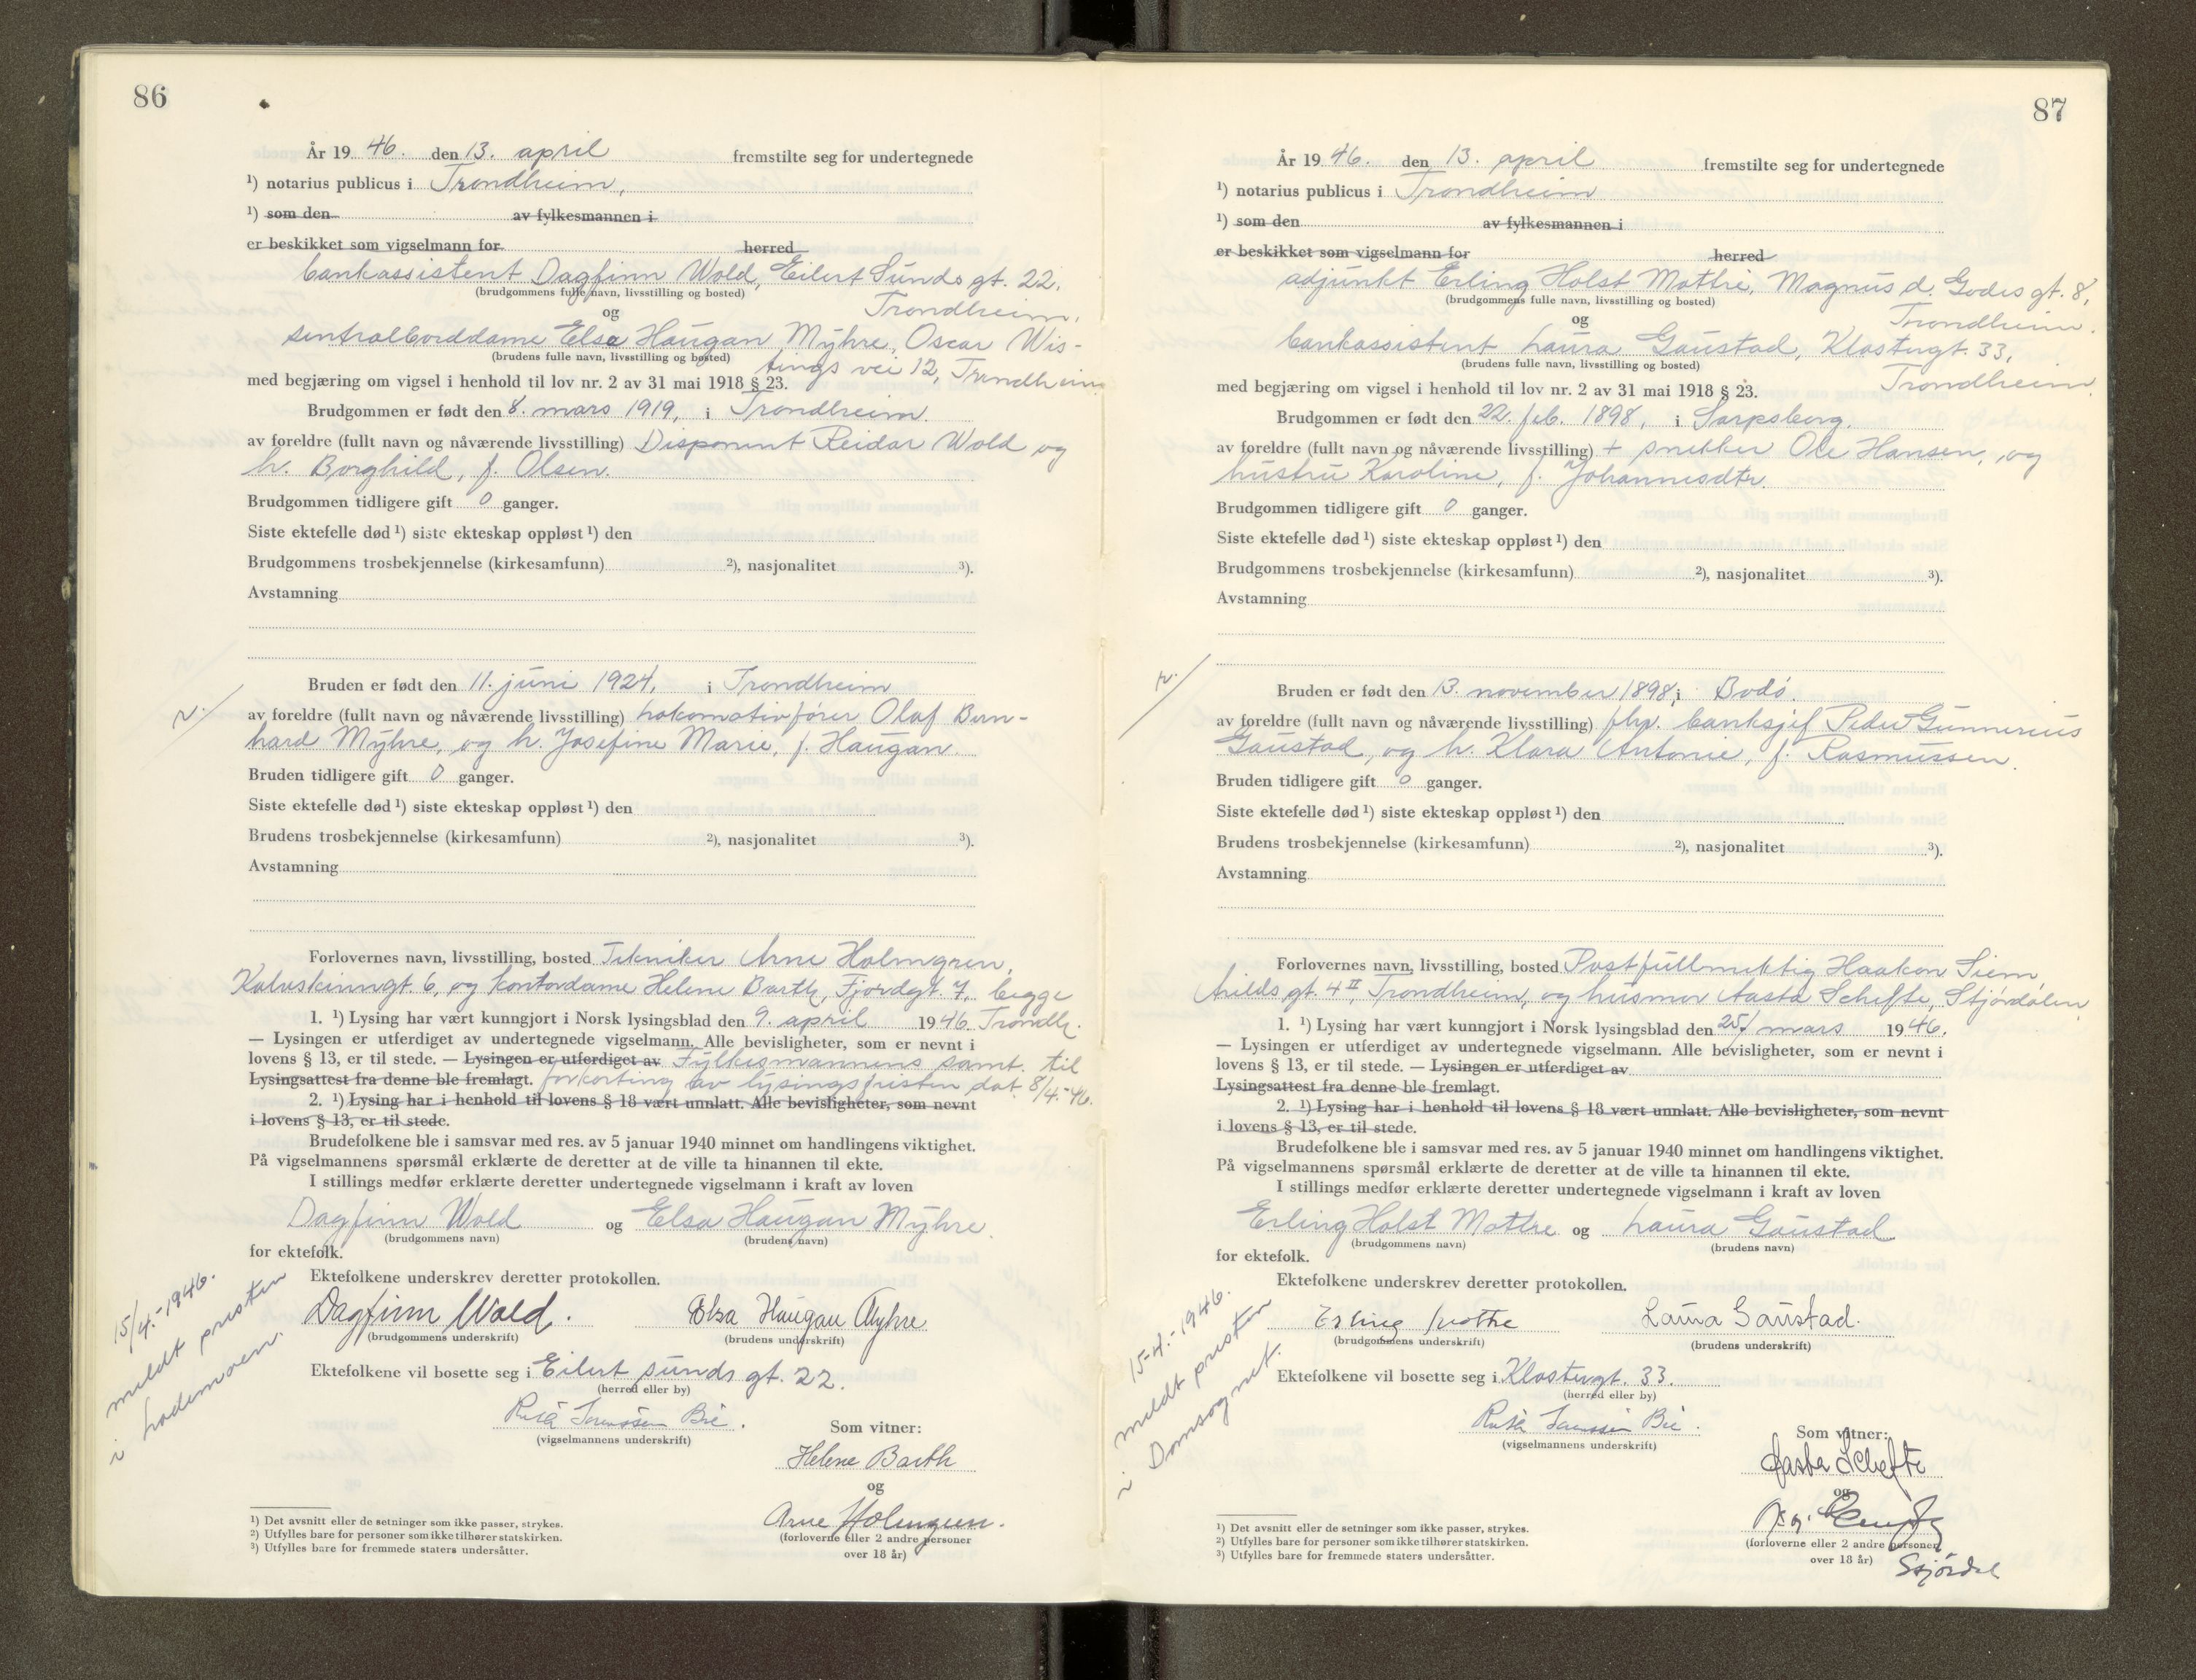 86
År 19 46. den 13. april fremstilte seg for undertegnede
¹) notarius publicus i Trondheim,
¹) som den av fylkesmannen i
er beskikket som vigselmann for herred
bankassistent Dagfinn Wold, Eilert Sunds gt. 22,
(brudgommens fulle navn, livsstilling og bosted)
og Trondheim,
sentralborddame Elsa Haugan Myhre, Oscar Wis-
(brudens fulle navn, livsstilling og bosted) tings vei 12, Trondheim
med begjæring om vigsel i henhold til lov nr. 2 av 31 mai 1918 § 23.
Brudgommen er født den 8. mars 1919, i Trondheim.
av foreldre (fullt navn og nåværende livsstilling) Disponent Reidar Wold og
h. Borghild, f. Olsen.
Brudgommen tidligere gift 0 ganger.
Siste ektefelle død ¹) siste ekteskap oppløst ¹) den
Brudgommens trosbekjennelse (kirkesamfunn) ²), nasjonalitet ³).
Avstamning
Bruden er født den 11. juni 1924, i Trondheim
av foreldre (fullt navn og nåværende livsstilling) Lokomotivfører Olaf Bern-
hard Myhre, og h. Josefine Marie, f. Haugan.
Bruden tidligere gift 0 ganger.
Siste ektefelle død ¹) siste ekteskap oppløst ¹) den
Brudens trosbekjennelse (kirkesamfunn) ²), nasjonalitet ³).
Avstamning
Forlovernes navn, livsstilling, bosted Tekniker Arne Holmgren,
Kalvskinngt. 6, og kontordame Helene Barth, Fjordgt. 7, begge
1. ¹) Lysing har vært kunngjort i Norsk lysingsblad den 9. april 1946. Trondh.
— Lysingen er utferdiget av undertegnede vigselmann. Alle bevisligheter, som er nevnt i
lovens § 13, er til stede. — Lysingen er utferdiget av Fylkesmannens samt. til
Lysingsattest fra denne ble fremlagt. forkorting av lysingsfristen dat. 8/4.-46.
2. ¹) Lysing har i henhold til lovens § 18 vært unnlatt. Alle bevisligheter, som nevnt
i lovens § 13, er til stede.
Brudefolkene ble i samsvar med res. av 5 januar 1940 minnet om handlingens viktighet.
På vigselmannens spørsmål erklærte de deretter at de ville ta hinannen til ekte.
I stillings medfør erklærte deretter undertegnede vigselmann i kraft av loven
Dagfinn Wold og Elsa Haugan Myhre.
(brudgommens navn) (brudens navn)
for ektefolk.
Ektefolkene underskrev deretter protokollen.
Dagfinn Wold. Elsa Haugan Myhre
(brudgommens underskrift) (brudens underskrift)
Ektefolkene vil bosette seg i Eilert Sunds gt. 22.
(herred eller by)
(vigselmannens underskrift)
Som vitner:
Helene Barth
og
Arne Holmgren.
(forloverne eller 2 andre personer
over 18 år)
15/4.-1946.
meldt presten
i Lademoen.
¹) Det avsnitt eller de setninger som ikke passer, strykes.
²) Utfylles bare for personer som ikke tilhører statskirken.
³) Utfylles bare for fremmede staters undersåtter.
87
År 19 46. den 13. april fremstilte seg for undertegnede
¹) notarius publicus i Trondheim
¹) som den av fylkesmannen i
er beskikket som vigselmann for herred
adjunkt Erling Holst Mothe, Magnus d. Godes gt. 8,
(brudgommens fulle navn, livsstilling og bosted)
og Trondheim.
bankassistent Laura Gaustad, Klostergt. 33,
(brudens fulle navn, livsstilling og bosted)
Trondheim.
med begjæring om vigsel i henhold til lov nr. 2 av 31 mai 1918 § 23.
Brudgommen er født den 22. feb. 1898, i Sarpsborg.
av foreldre (fullt navn og nåværende livsstilling) + snekker Ole Hansen, og
hustru Karoline, f. Johannesdtr.
Brudgommen tidligere gift 0 ganger.
Siste ektefelle død ¹) siste ekteskap oppløst ¹) den
Brudgommens trosbekjennelse (kirkesamfunn) ²), nasjonalitet ³).
Avstamning
Bruden er født den 13. november 1898, i Bodø.
av foreldre (fullt navn og nåværende livsstilling) fhv. banksjef Peder Gunnerius
Gaustad, og h. Klara Antonie, f. Rasmussen.
Bruden tidligere gift 0 ganger.
Siste ektefelle død ¹) siste ekteskap oppløst ¹) den
Brudens trosbekjennelse (kirkesamfunn) ²), nasjonalitet ³).
Avstamning
Forlovernes navn, livsstilling, bosted Postfullmektig Haakon Siem
gt. 4 II, Trondheim, og husmor Aasta Schefte, Stjørdalen.
1. ¹) Lysing har vært kunngjort i Norsk lysingsblad den 25/ mars 1946.
— Lysingen er utferdiget av undertegnede vigselmann. Alle bevisligheter, som er nevnt i
lovens § 13, er til stede. — Lysingen er utferdiget av
Lysingsattest fra denne ble fremlagt.
2. ¹) Lysing har i henhold til lovens § 18 vært unnlatt. Alle bevisligheter, som nevnt
i lovens § 13, er til stede.
Brudefolkene ble i samsvar med res. av 5 januar 1940 minnet om handlingens viktighet.
På vigselmannens spørsmål erklærte de deretter at de ville ta hinannen til ekte.
I stillings medfør erklærte deretter undertegnede vigselmann i kraft av loven
Erling Holst Mothe og Laura Gaustad
(brudgommens navn) (brudens navn)
for ektefolk.
Ektefolkene underskrev deretter protokollen.
Erling Mothe Laura Gaustad.
(brudgommens underskrift) (brudens underskrift)
Ektefolkene vil bosette seg i Klostergt. 33.
(herred eller by)
(vigselmannens underskrift)
Som vitner:
Aasta Schefte
og
(forloverne eller 2 andre personer
over 18 år) Stjørdal
15-4.-1946.
meldt presten
i Domsognet.
¹) Det avsnitt eller de setninger som ikke passer, strykes.
²) Utfylles bare for personer som ikke tilhører statskirken.
³) Utfylles bare for fremmede staters undersåtter.